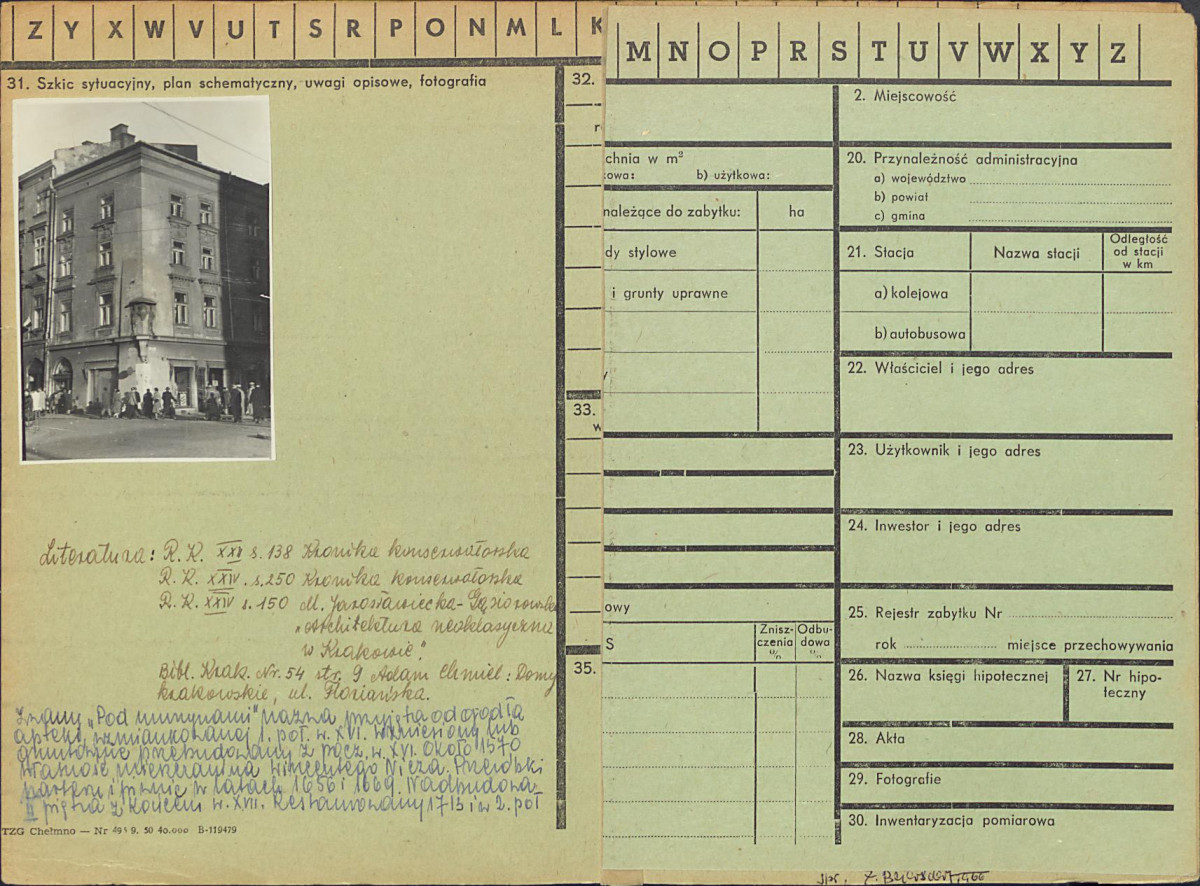 Z Y X W V U T S R P O N M L K
31. Szkic sytuacyjny, plan schematyczny, uwagi opisowe, fotografia
32.
r
33.
w
35.
Literatura: R. K. XXI s. 138 Kronika konserwatorska
R. K. XXIV. s. 250 Kronika konserwatorska
R. K. XXIV s. 150 M. Jarosławiecka-Gąsiorowska
"Architektura neoklasyczna
w Krakowie."
Bibl. Krak. Nr. 54 str. 9 Adam Chmiel: Domy
krakowskie, ul. Floriańska.
Zwany „Pod murzynami" nazwa przyjęta od godła
apteki, wzmiankowanej 1. poł. w. XVI. Wzniesiony lub
gruntownie przebudowany z pocz. w. XVI. Około 1570
własność Wincentego
parteru i piwnic w latach 1656 i 1669. Nadbudowa
II piętra z końcem w. XVII. Restaurowany 1713 i w 2. poł
TZG Chełmno — Nr 9. 50 40.000 B-119479
M N O P R S T U V W X Y Z
chnia w m²
owa: b) użytkowa:
należące do zabytku: ha
dy stylowe
i grunty uprawne
y
owy
S
Znisz-czenia % Odbu-dowa %
2. Miejscowość
20. Przynależność administracyjna
a) województwo
b) powiat
c) gmina
21. Stacja Nazwa stacji Odległość od stacji w km
a) kolejowa
b) autobusowa
22. Właściciel i jego adres
23. Użytkownik i jego adres
24. Inwestor i jego adres
25. Rejestr zabytku Nr
rok miejsce przechowywania
26. Nazwa księgi hipotecznej 27. Nr hipo-teczny
28. Akta
29. Fotografie
30. Inwentaryzacja pomiarowa